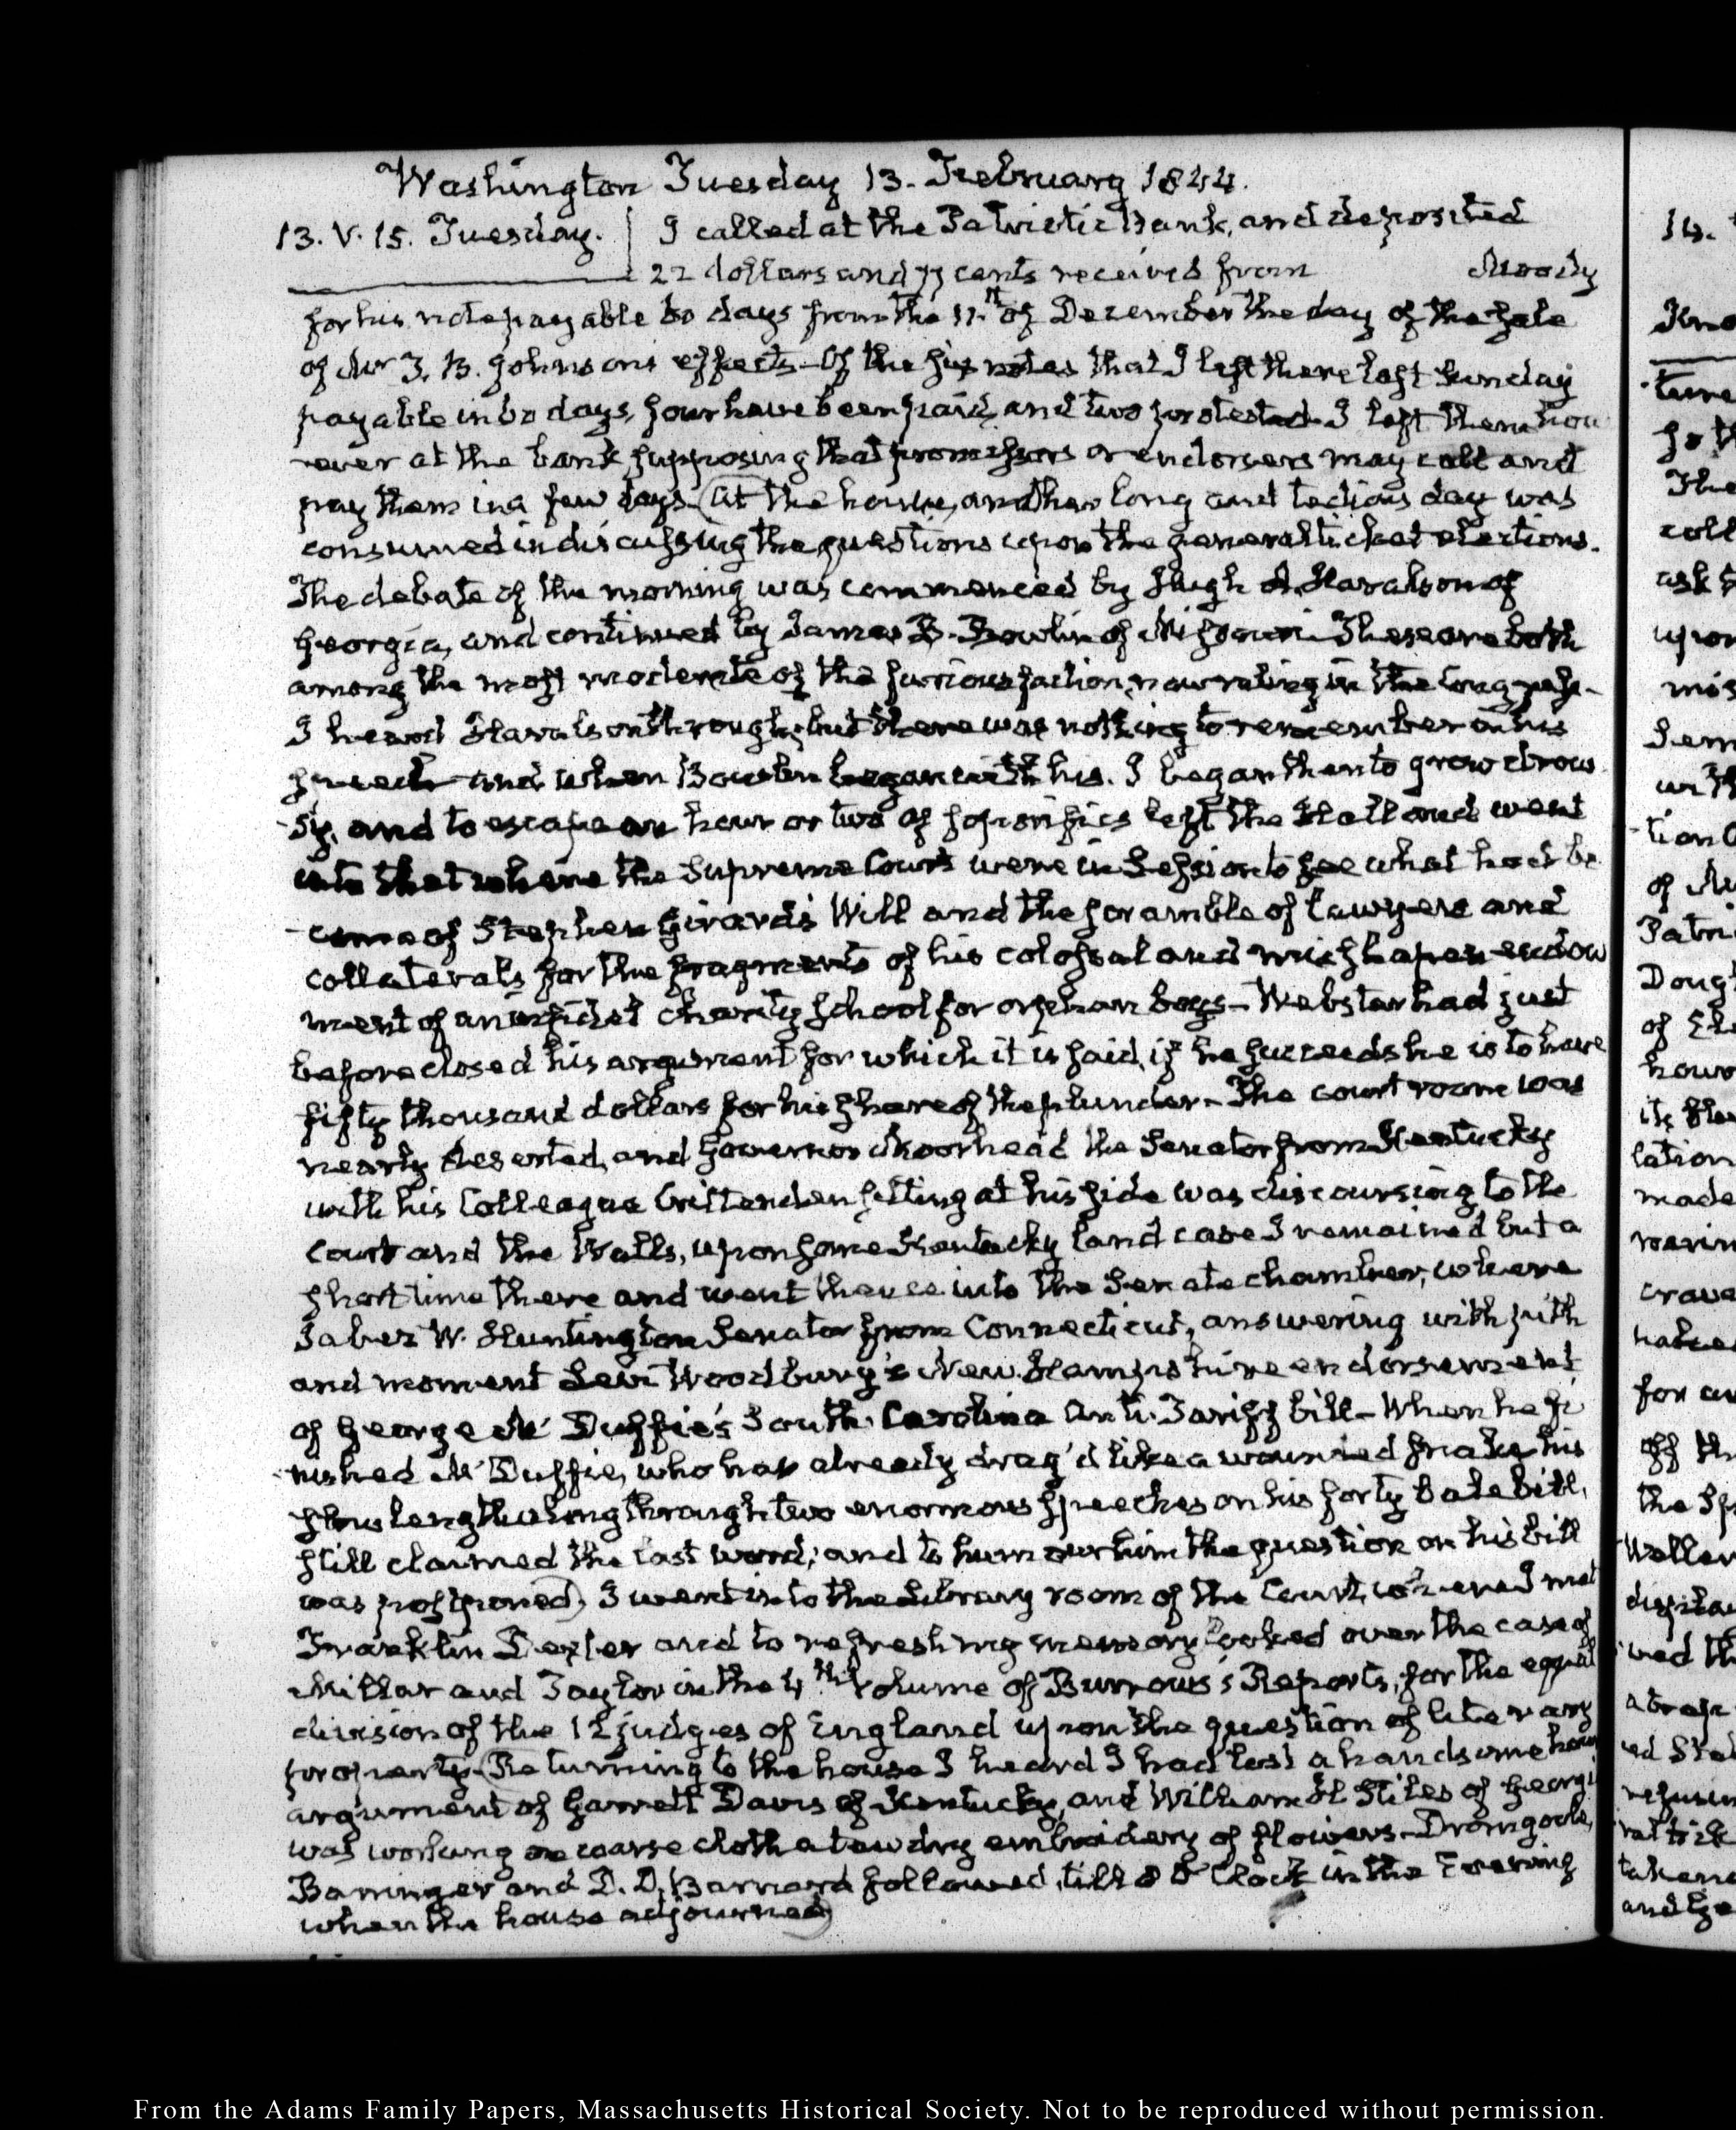 Washington Tuesday 13. February 1844.
13. V. 15. Tuesday. I called at the Patriotic Bank, and deposited
22 dollars and 77 cents received from Moody
for his note payable 60 days from the 11th of December the day of the sale
of Mr J. B. Johnson's effects - Of the six notes that I left there last Sunday
payable in 60 days, four have been paid, and two protested. I left them how
-ever at the bank, supposing that promissors or endorsers may call and
pay them in a few days. At the house, another long and tedious day was
consumed in discussing the questions upon the general ticket elections.
The debate of the morning was commenced by Hugh A. Haralson of
Georgia, and continued by James B. Bowlin of Missouri. These are both
among the most moderate of the furious faction, now ruling in the
I heard Haralson through; but there was nothing to remember in his
speech - and when Bowlin began with his. I began then to grow drow
-sy, and to escape an hour or two of soporifics left the Hall and went
into that where the Supreme Court were in Session to see what had be
-come of Stephen Girard's Will and the scramble of lawyers and
collaterals for the fragments of his colossal and misshapen endow
ment of an infidel charity school for orphan boys - Webster had just
before closed his argument for which it is said, if he succeeds he is to have
fifty thousand dollars for his share of the plunder - The court room was
nearly deserted, and Governor Moorhead the Senator from Kentucky
with his Colleague Crittenden sitting at his side was discoursing to the
Court and the Walls, upon some Kentucky land case I remained but a
short time there and went thence into the Senate chamber, where
Jabez W. Huntington Senator from Connecticut, answering with pith
and moment Levi Woodbury's New Hampshire endorsement
of George McDuffie's South Carolina Anti-Tariff bill - When he fi
-nished McDuffie, who has already drag'd like a wounded snake his
slow length along through two enormous speeches on his forty bale bill,
still claimed the last word; and to humour him the question on his bill
was postponed. I went into the Library room of the Court, where I met
Franklin Dexter and to refresh my memory looked over the case of
Millar and Taylor in the 4th volume of Burrows's Reports, for the equal
division of the 12 judges of England upon the question of literary
property - Returning to the house I heard I had lost a handsome hour
argument of Garrett Davis of Kentucky, and William H Stiles of Georgi
was working on coarse cloth a tawdry embroidery of flowers - Dromgoole,
Barringer and D. D. Barnard followed, till 8 O'Clock in the Evening
when the house adjourned
From the Adams Family Papers, Massachusetts Historical Society. Not to be reproduced without permission.